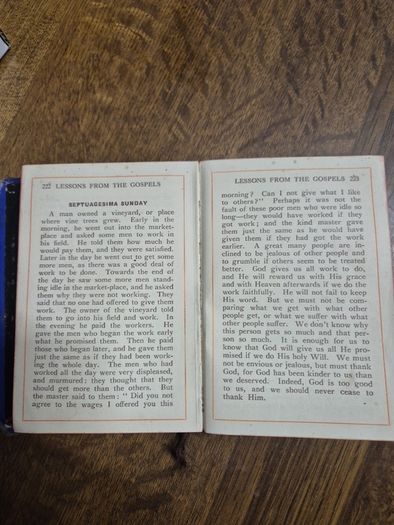 222 LESSONS FROM THE GOSPELS
SEPTUAGESIMA SUNDAY
A man owned a vineyard, or place
where vine trees grew. Early in the
morning, he went out into the market-
place and asked some men to work in
his field. He told them how much he
would pay them, and they were satisfied.
Later in the day he went out to get some
more men, as there was a good deal of
work to be done. Towards the end of
the day he saw some more men stand-
ing idle in the market-place, and he asked
them why they were not working. They
said that no one had offered to give them
work. The owner of the vineyard told
them to go into his field and work. In
the evening he paid the workers. He
gave the men who began the work early
what he promised them. Then he paid
those who began later, and he gave them
just the same as if they had been work-
ing the whole day. The men who had
worked all the day were very displeased,
and murmured; they thought that they
should get more than the others. But
the master said to them: " Did you not
agree to the wages I offered you this
LESSONS FROM THE GOSPELS 223
morning? Can I not give what I like
to others?" Perhaps it was not the
fault of these poor men who were idle so
long—they would have worked if they
got work; and the kind master gave
them just the same as he would have
given them if they had got the work
earlier. A great many people are in-
clined to be jealous of other people and
to grumble if others seem to be treated
better. God gives us all work to do,
and He will reward us with His grace
and with Heaven afterwards if we do the
work faithfully. He will not fail to keep
His word. But we must not be com-
paring what we get with what other
people get, or what we suffer with what
other people suffer. We don't know why
this person gets so much and that per-
son so much. It is enough for us to
know that God will give us all He pro-
mised if we do His holy Will. We must
not be envious or jealous, but must thank
God, for God has been kinder to us than
we deserved. Indeed, God is too good
to us, and we should never cease to
thank Him.